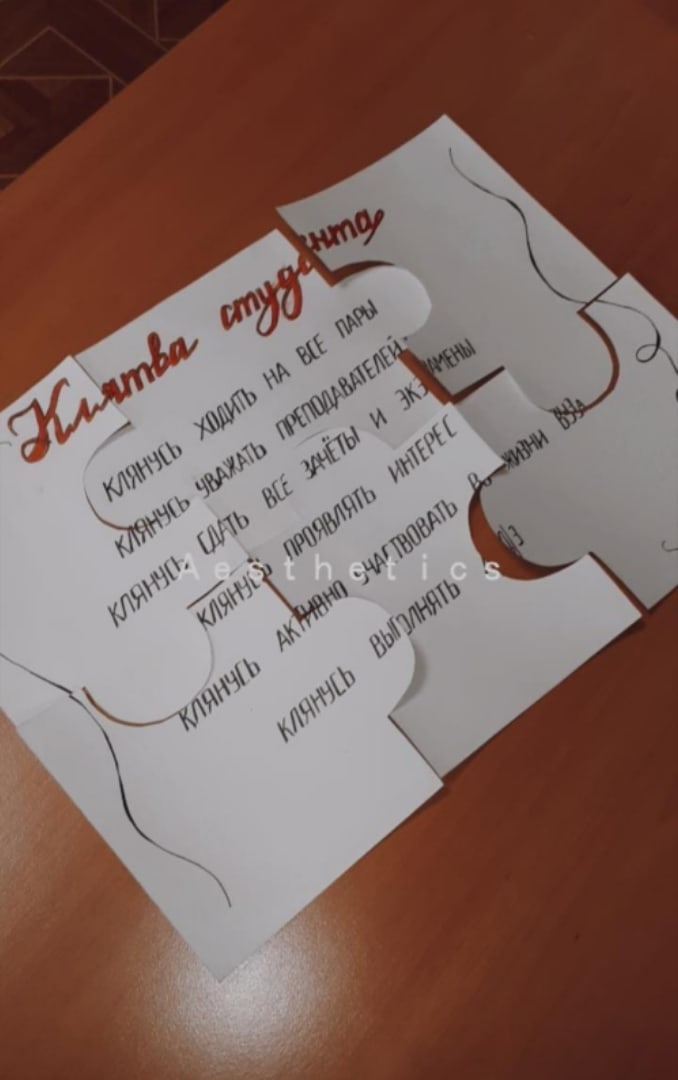 Клятва студента
КЛЯНУСЬ ХОДИТЬ НА ВСЕ ПАРЫ
КЛЯНУСЬ УВАЖАТЬ ПРЕПОДАВАТЕЛЕЙ
КЛЯНУСЬ СДАТЬ ВСЕ ЗАЧЁТЫ И ЭКЗАМЕНЫ
КЛЯНУСЬ ПРОЯВЛЯТЬ ИНТЕРЕС
КЛЯНУСЬ АКТИВНО УЧАСТВОВАТЬ В ЖИЗНИ ВУЗА
КЛЯНУСЬ ВЫПОЛНЯТЬ Д/З
Aesthetics